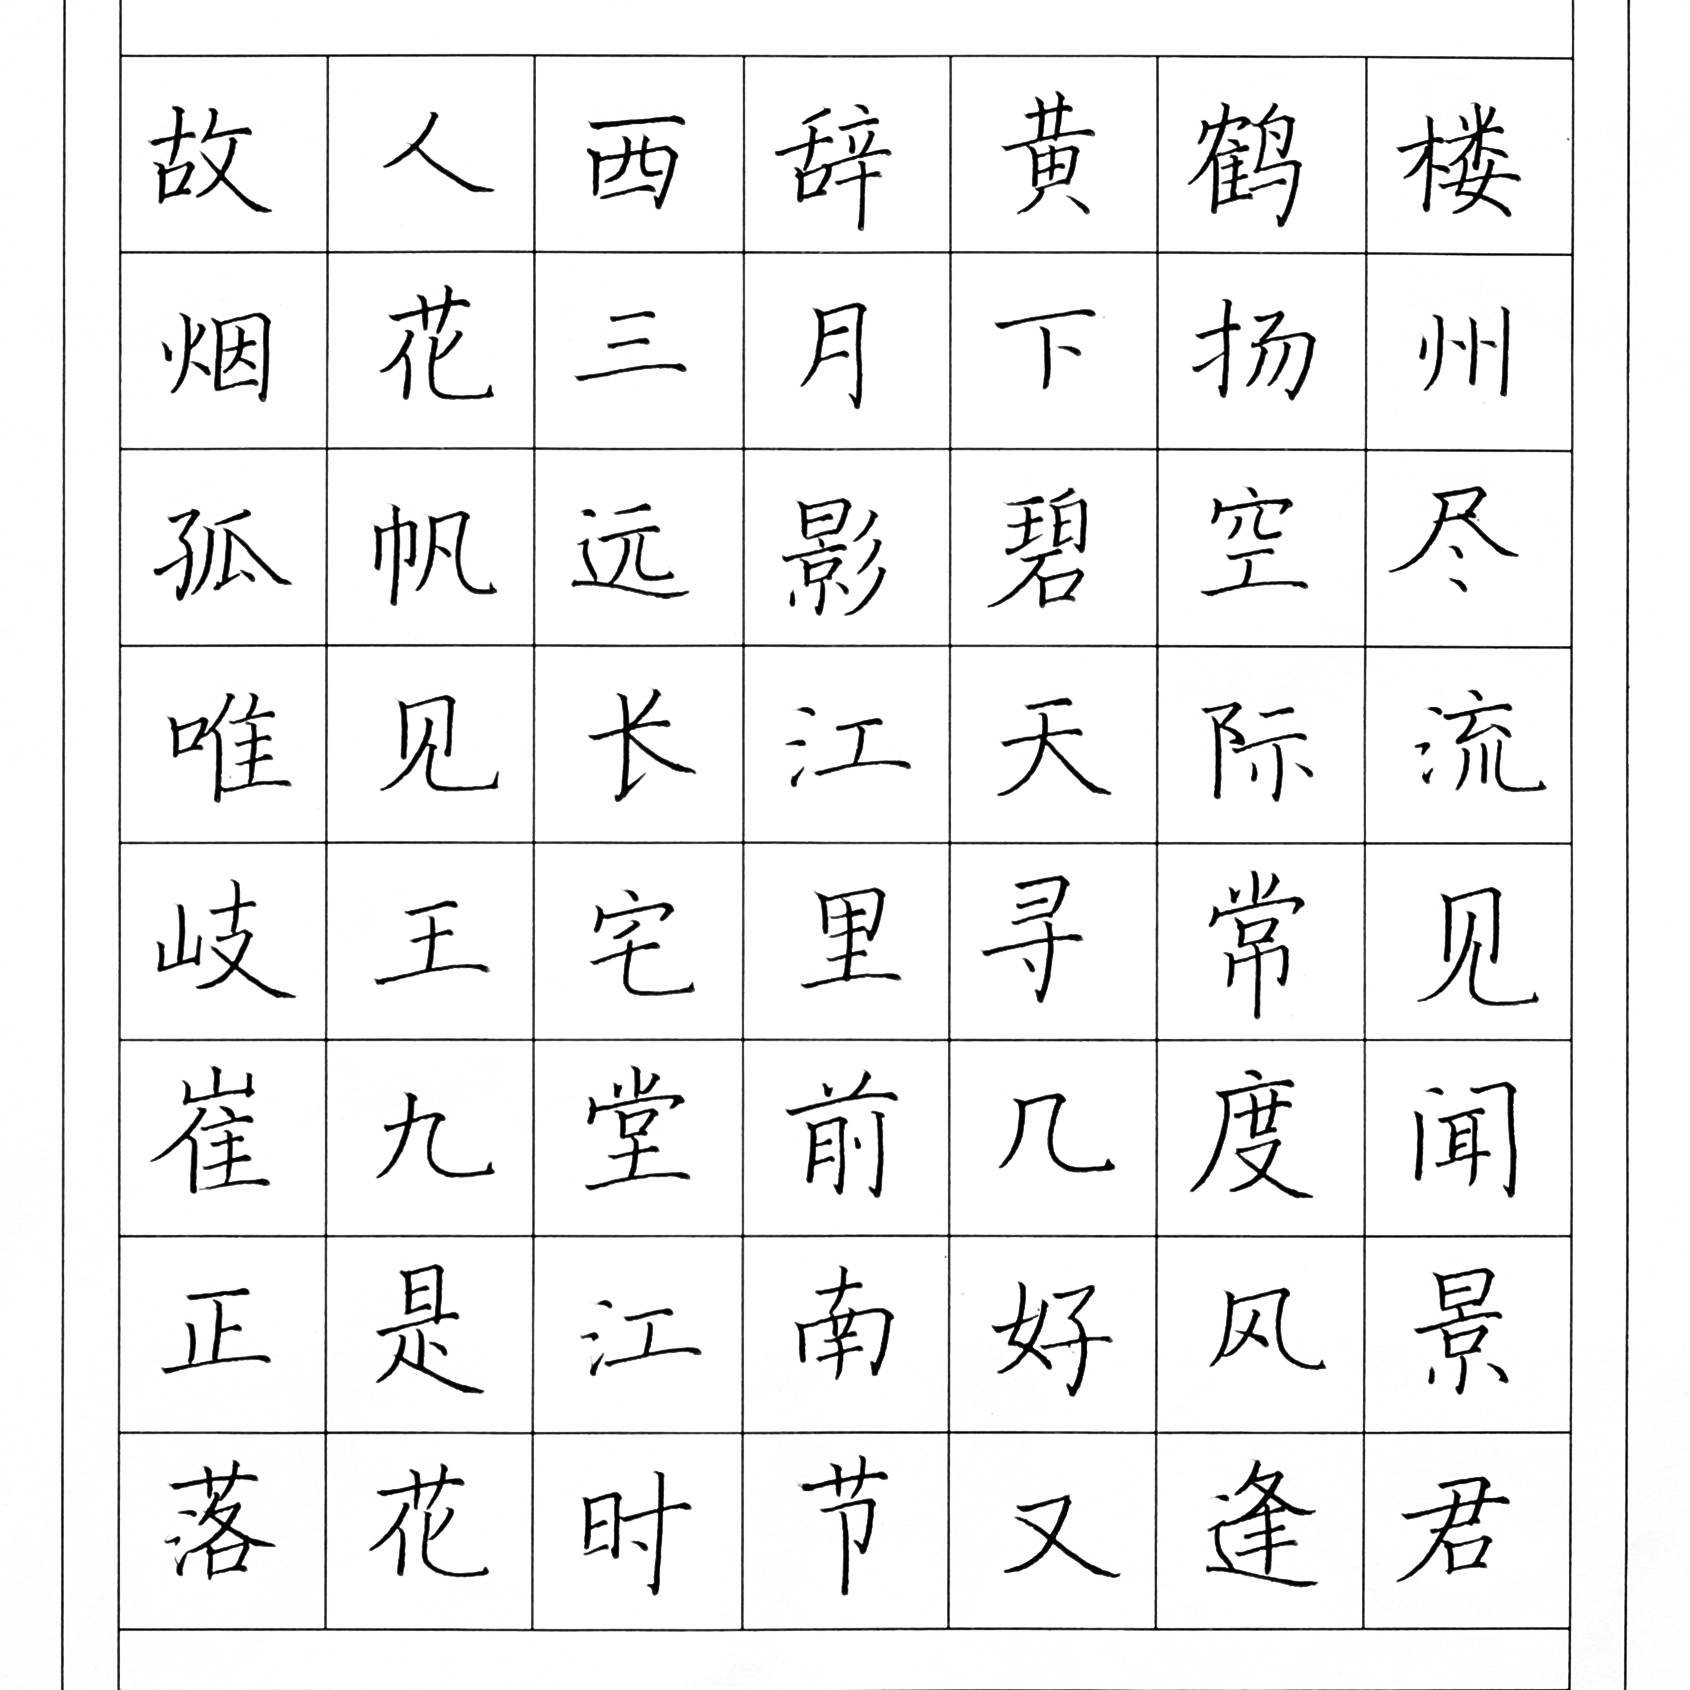 故人西辞黄鹤楼
烟花三月下扬州
孤帆远影碧空尽
唯见长江天际流
岐王宅里寻常见
崔九堂前几度闻
正是江南好风景
落花时节又逢君